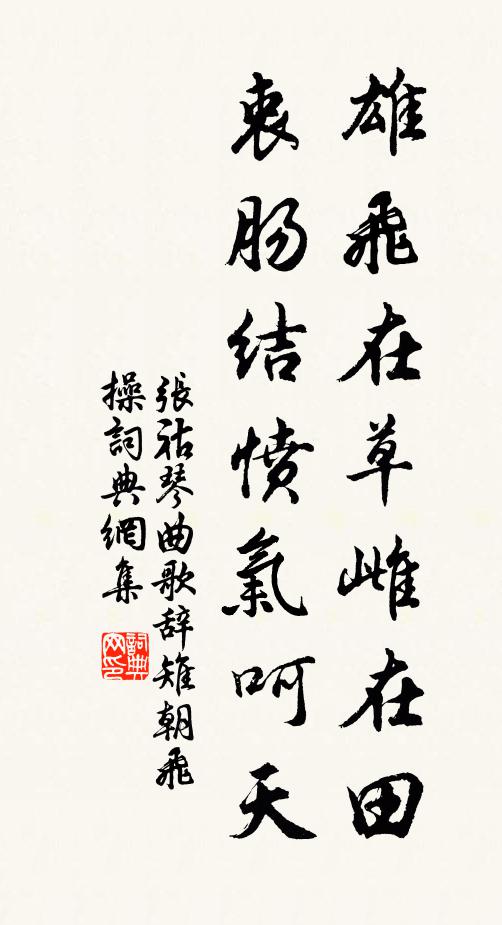 雄飛在草雌在田
衷腸結憤氣呵天
張祜琴曲歌辞雉朝飛
操詞典網集
詞典网印